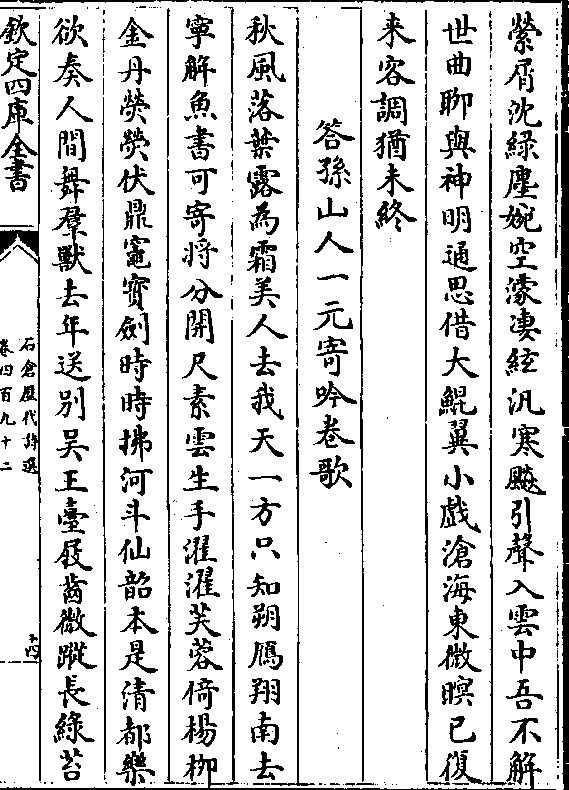 縈屑沈緑塵婉空濛凄絃汎寒飈引聲入雲中吾不解
世曲聊與神明通思借大鯤翼小戲滄海東微暝已復
来客調猶未終
答孫山人一元寄吟卷歌
秋風落葉露為霜美人去我天一方只知朔鴈翔南去
寧解魚書可寄將分開尺素雲生手濯濯芙蓉倚楊柳
金丹熒熒伏鼎竈寳劍時時拂河斗仙韶本是清都樂
欲奏人間舞羣獸去年送别吴王臺屐齒微蹤長綠苔
欽定四庫全書
石倉歴代詩選
卷四百九十二